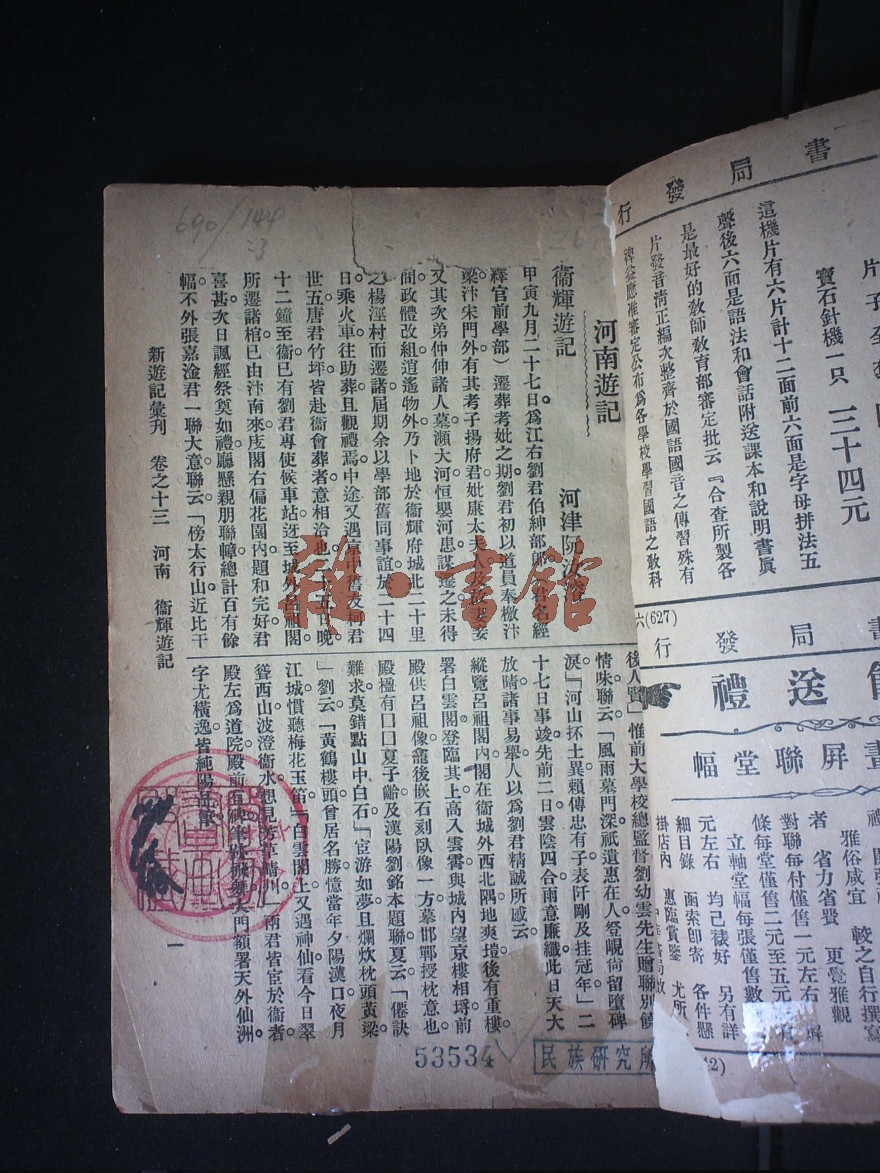 河南遊記
河津阮
衞輝遊記
甲寅九月二十七日爲江右劉君伯紳部郎
釋官前學部）遷葬考妣之期劉君初以道員奉檄汴
梁汴宋門外有其考子揚府君妣康太夫人及故妻妾
又其次弟仲伸諸人墓瀕大河恒嬰河患謀遷之未得
間政體改組逍遙物外乃卜地於衞輝府城北二十里
之楊涇村而遷諸屆期余以學部舊同事誼於二十四
日乘火車往助葬且觀禮焉中途又遇京中舊友柯君
世五唐君竹坪皆赴衞會葬者意相洽也二十五日晚
十二鐘至衞已有劉君專使候車站迓至城外呂祖閣
所遷諸棺已由汴南來庋閣右偏花園內題和完好君
喜甚次日諷經祭奠如禮廳懸親朋聯幛總計百有餘
幅不外張嘉淦君一聯大意聯云「傍太行山近比干
後人賢」惟前大學校總監督劉幼雲先生贈聯別饒
情味聯云「風雨墓門深祇遺惠在人祭峴尙留墮碑
淚」「河山抔土異賴傳忠有子表阡剛及挂冠年」二
十七日事竣先前二日雲陰四合雨意廉纖此日天大
放晴諸事易舉人以爲劉君精誠所感云
縱覽呂祖閣內閣在衞城外西北隅地爽塏後有重樓
署白雲閣登臨其上高入雲霄與城內望京樓相埒前
殿供呂祖像龕後嵌石刻臥像一方摹邯鄲授枕意也
殿楹有口口夏子齡及漢陽劉銘本題聯夏云「僊訣
難求莫錯點山中白石」「宦游如夢且爛炊枕頭黃粱
」劉云「黃鶴樓頭曾居名勝憶當年夕陽漢口夜月
江城慣聽梅花玉笛「白雲閣上又遇神仙看今日翠
聳西山波澄衞水想見芳草晴川」兩君皆宦於衞者
殿左爲道院殿前有碑大門額署天外仙洲
字尤橫逸皆純陽
新遊記彙刊　卷之十三　河南　衞輝遊記
一
690/144
53534
民族研究所
雜·書館
書局發行
寶石針機一只　三十四元
這機片有六片計十二面前六面是字母拼法五
聲後六面是語法和會話附送課本和說明書眞
是最好的教師教育部審定批云『合查所製各
片發音清正編次整齊於國語國音之傳習殊有
裨益應准審定公布爲各學校學習國語之教科
六(627)
書局發行
送禮
畫屏聯堂幅
雅俗咸宜　較之自行撰寫
者　省力省費　更覺雅觀
對聯每付僅售一元左右　屏
條每堂僅售二元至五元
立軸堂幅每張僅售數
元左右　均已裱好　另有詳
細目錄　函索卽寄　各件懸
掛店內　惠臨賞鑒　尤所
2)